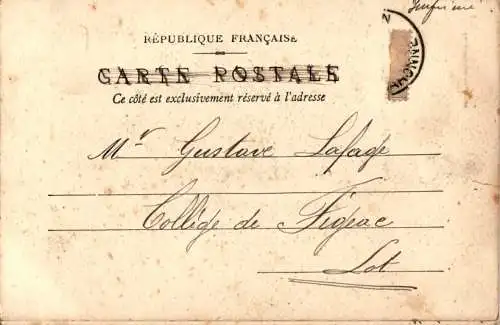 Imprimé
RÉPUBLIQUE FRANÇAISE
CARTE POSTALE
Ce côté est exclusivement réservé à l'adresse
Mr Gustave Lafage
Collège de Figeac
Lot